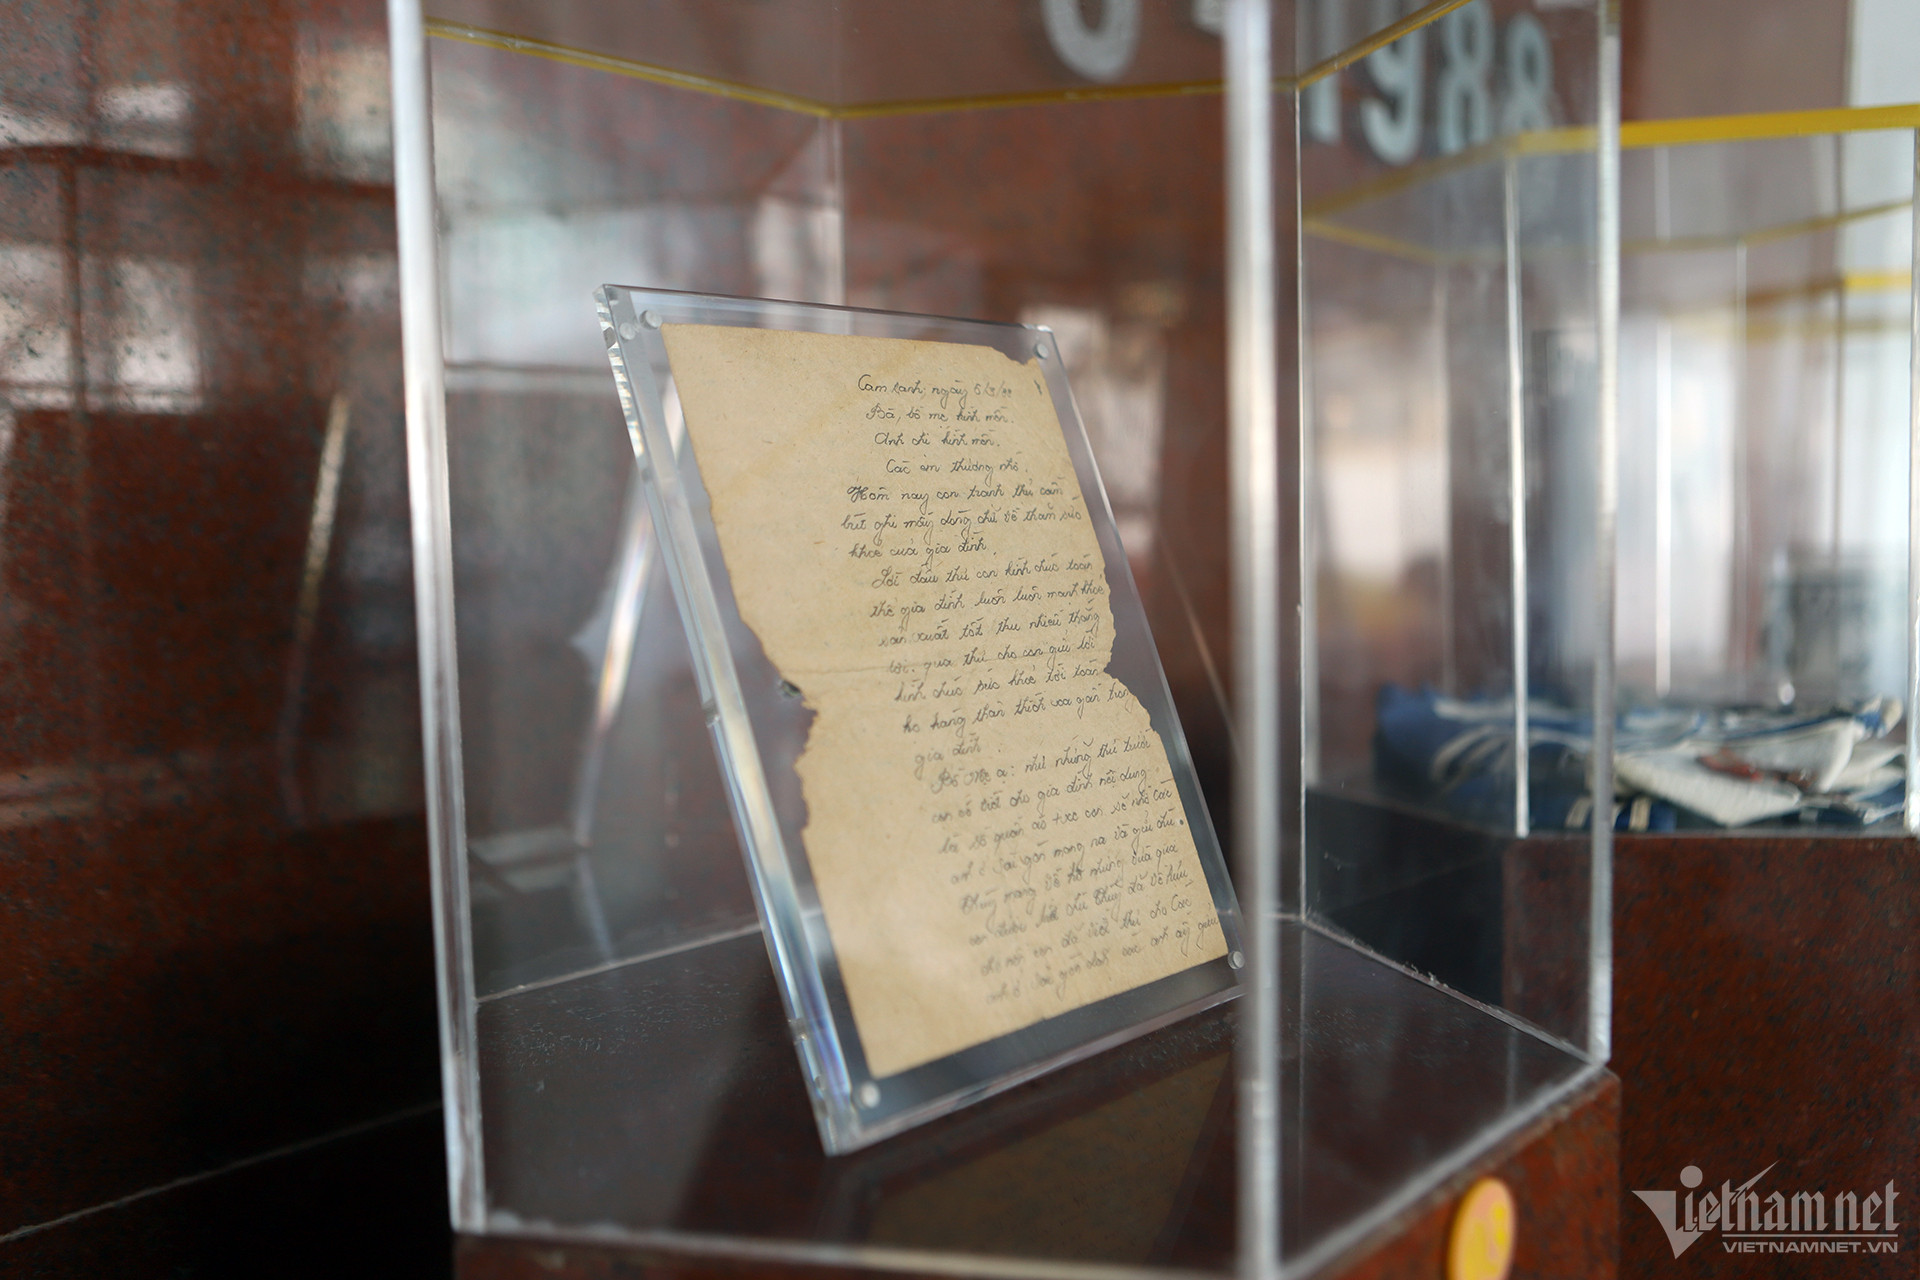 1988
Cam ranh, ngày
Bà, bố mẹ kính mến.
Anh chị kính mến.
Các em thương nhớ.
Hôm nay con tranh thủ cầm
bút ghi mấy dòng chữ về thăm sức
khoẻ của gia đình.
Lời đầu thư con kính chúc toàn
thể gia đình luôn luôn mạnh khoẻ
sản xuất tốt thu nhiều thắng
lợi. qua thư cho con gửi lời
kính chúc sức khoẻ tới toàn
họ hàng thân thích xa gần trong
gia đình.
Bố Mẹ ạ: như những thư trước
con có viết cho gia đình nội dung
là số quần áo con sẽ nhờ các
anh ở Sài gòn mang ra và gửi chú
Thắng mang về hộ nhưng vừa qua
con được biết chú Thắng đã về
cho nên con đã viết thư cho các
anh ở Sài gòn các anh ấy gửi
Vietnamnet
VIETNAMNET.VN